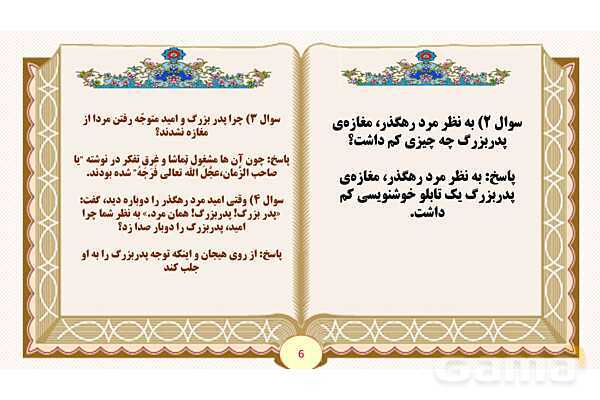 سوال ۲) به نظر مرد رهگذر، مغازه‌ی
پدربزرگ چه چیزی کم داشت؟
پاسخ: به نظر مرد رهگذر، مغازه‌ی
پدربزرگ یک تابلو خوشنویسی کم
داشت.
سوال ۳) چرا پدر بزرگ و امید متوجّه رفتن مردا از
مغازه نشدند؟
پاسخ: چون آن ها مشغول تماشا و غرق تفکر در نوشته "یا
صاحب الزّمان،عجَّلَ الله تعالی فَرَجَهُ" شده بودند.
سوال ۴) وقتی امید مرد رهگذر را دوباره دید، گفت:
«پدر بزرگ! پدربزرگ! همان مرد.» به نظر شما چرا
امید، پدربزرگ را دوبار صدا زد؟
پاسخ: از روی هیجان و اینکه توجه پدربزرگ را به او
جلب کند
6
Gama